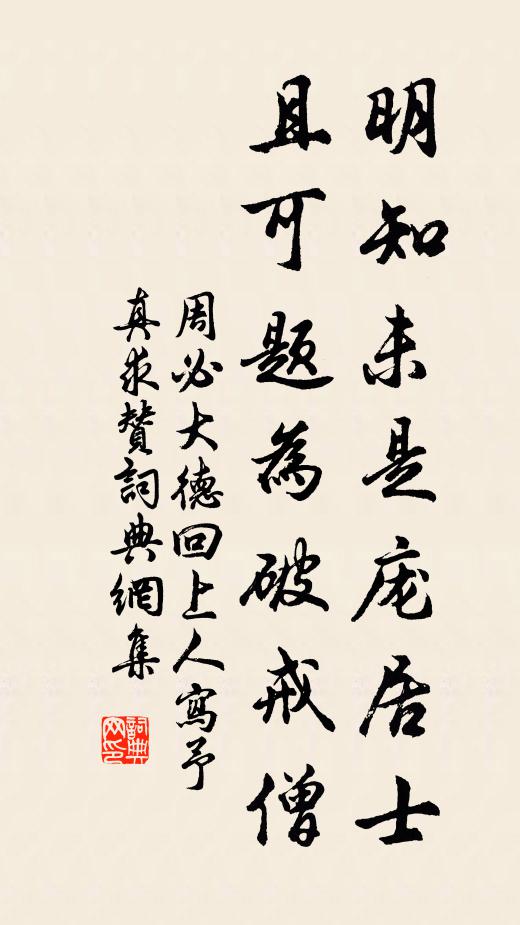 明知未是庞居士
且可题為破戒僧
周必大德回上人寫予
真求贊詞典網集
詞典
网印